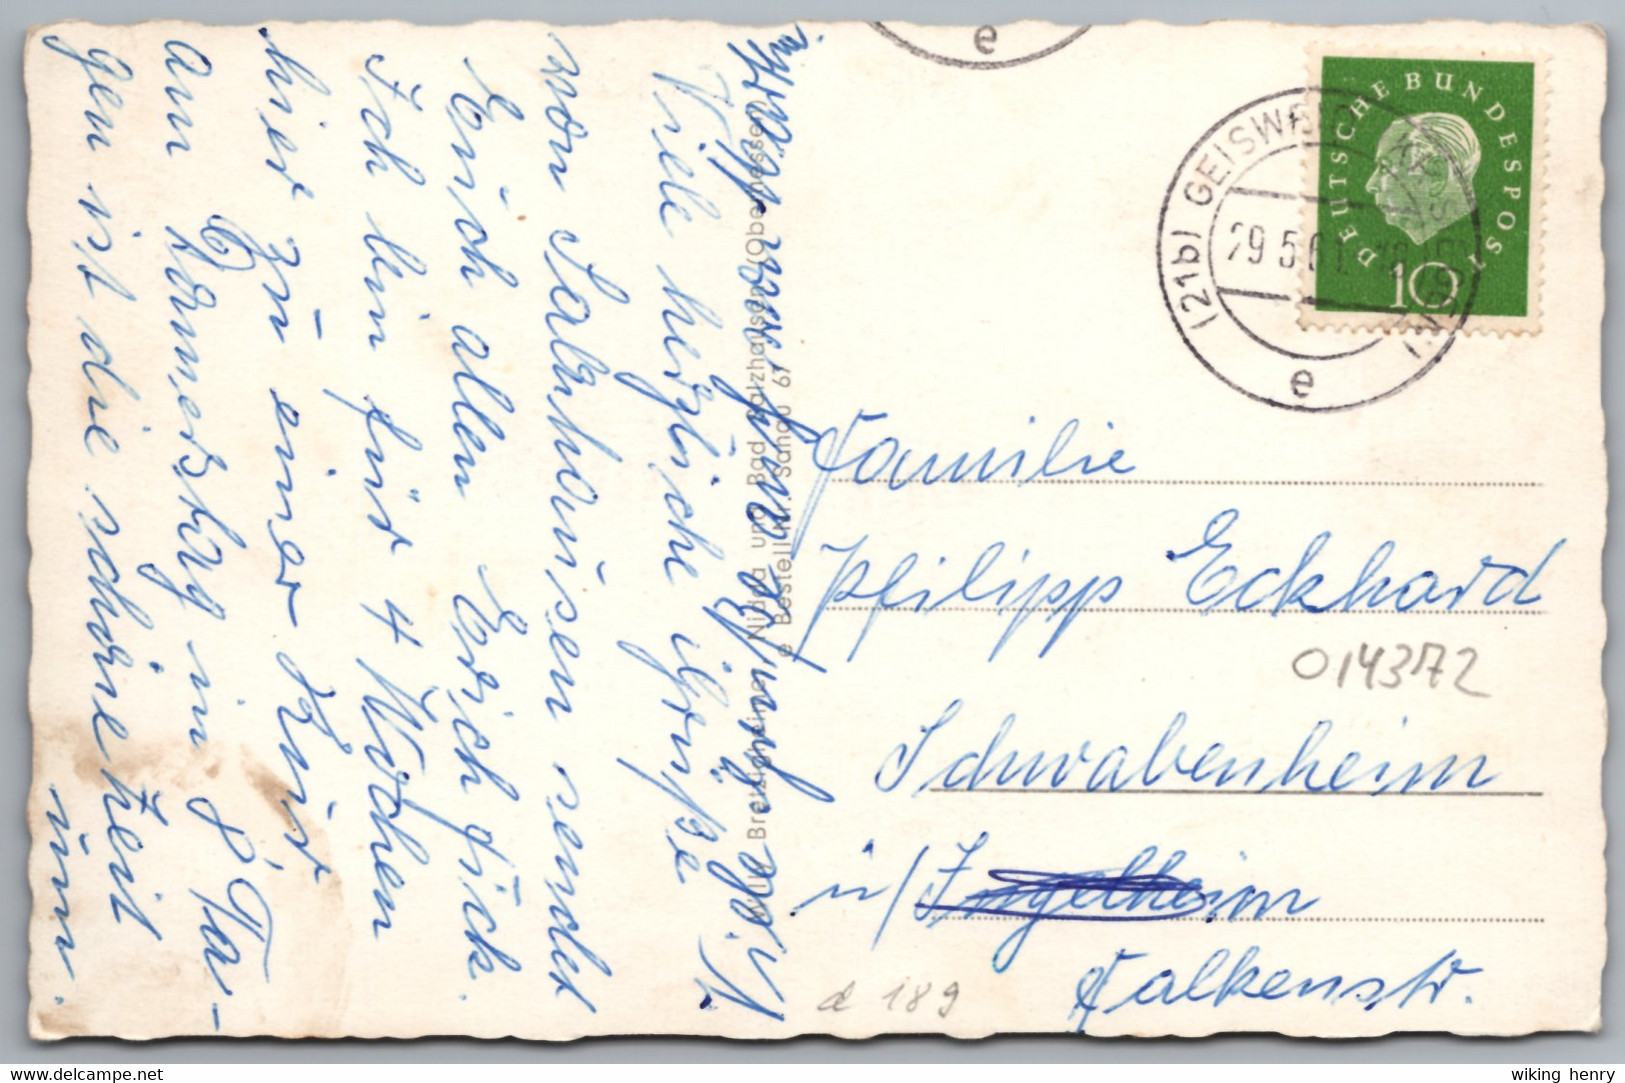 Viele herzliche Grüße
von Salzhausen sendet
Euch allen Erich Fück.
Ich bin für 4 Wochen
hier zu einer Kur
am Donnerstag in 8 Ta-
gen ist die schöne Zeit
um.
Willi Breidigheimer, Nidda und Bad Salzhausen (Oberhessen)
e Bestell Nr. Sand 67
e
DEUTSCHE BUNDESPOST
10
(21b) GEISWEID
29.5.61
e
Familie
Philipp Eckhard
014372
Schwabenheim
ü/Ingelheim
Falkenstr.
d 189
www.delcampe.net
wiking henry